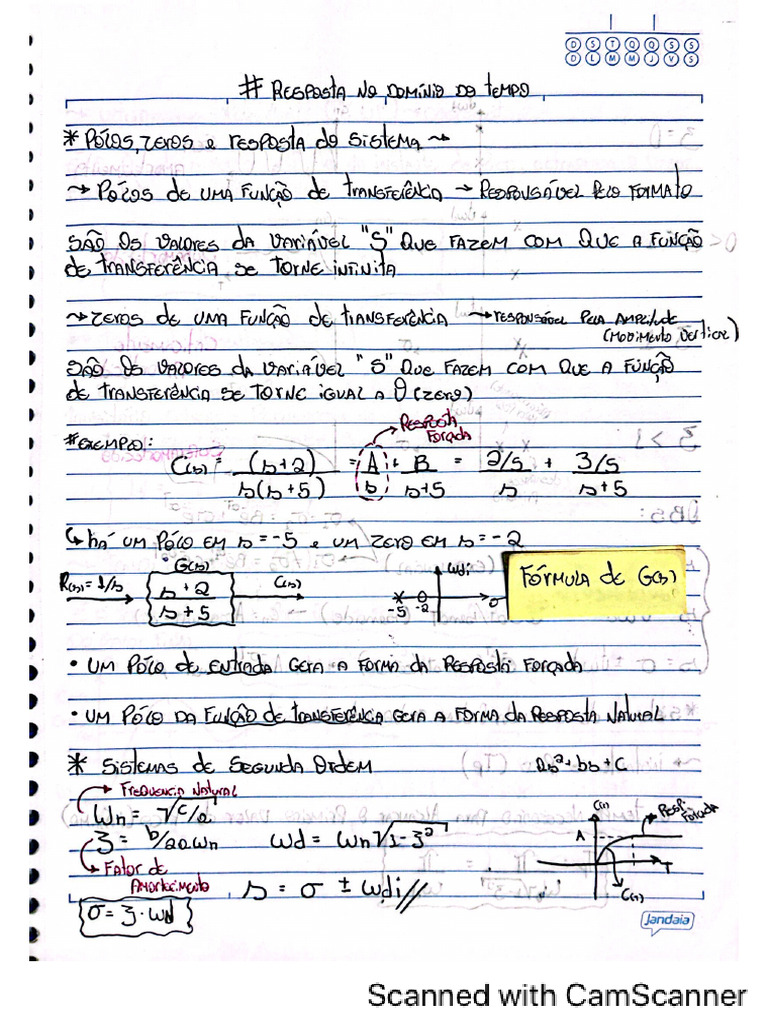 D S T Q Q S S
D L M M J V S
# Resposta no domínio do tempo
* Pólos, zeros e resposta do sistema ~
~> Pólos de uma função de transferência -> Responsável pelo formato
São os valores da variável "S" que fazem com que a função
de transferência se torne infinita
~> zeros de uma função de transferência -> responsável pela amplitude
(movimento vertical)
São os valores da variável "S" que fazem com que a função
de transferência se torne igual a 0 (zero)
Resposta
Forçada
# exemplo:
C(s) = (s+2) / s(s+5) = A/s + B/s+5 = 2/5 / s + 3/5 / s+5
↳ há um pólo em s=-5 e um zero em s=-2
• G(s)
R(s)=1/s
s+2
s+5
C(s)
ωdj
-5 -2
σ
Fórmula de G(s)
• Um pólo de entrada gera a forma da resposta forçada
• Um pólo da função de transferência gera a forma da resposta natural
* Sistemas de segunda ordem
as²+bs+c
Frequencia Natural
ωn = √c/a
ζ = b/2a.ωn
ωd = ωn√1-ζ²
Fator de
Amortecimento
s = σ ± ωdi //
σ = ζ.ωd
C(s)
A
Resp.
Forçada
T
C(n)
jandaia
Scanned with CamScanner